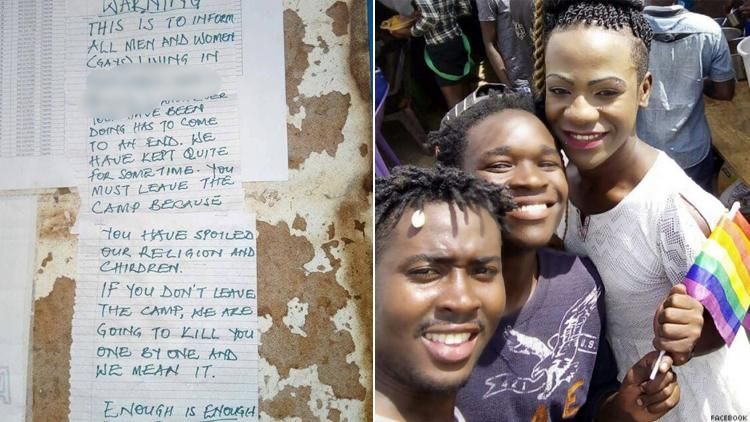 WARNING
THIS IS TO INFORM
ALL MEN AND WOMEN
(GAYS) LIVING IN
HAVE BEEN
DOING HAS TO COME
TO AN END. WE
HAVE KEPT QUITE
FOR SOME TIME. YOU
MUST LEAVE THE
CAMP BECAUSE
YOU HAVE SPOILED
OUR RELIGION AND
CHIRDREN.
IF YOU DON'T LEAVE
THE CAMP, WE ARE
GOING TO KILL YOU
ONE BY ONE AND
WE MEAN IT.
ENOUGH IS ENOUGH
FACEBOOK